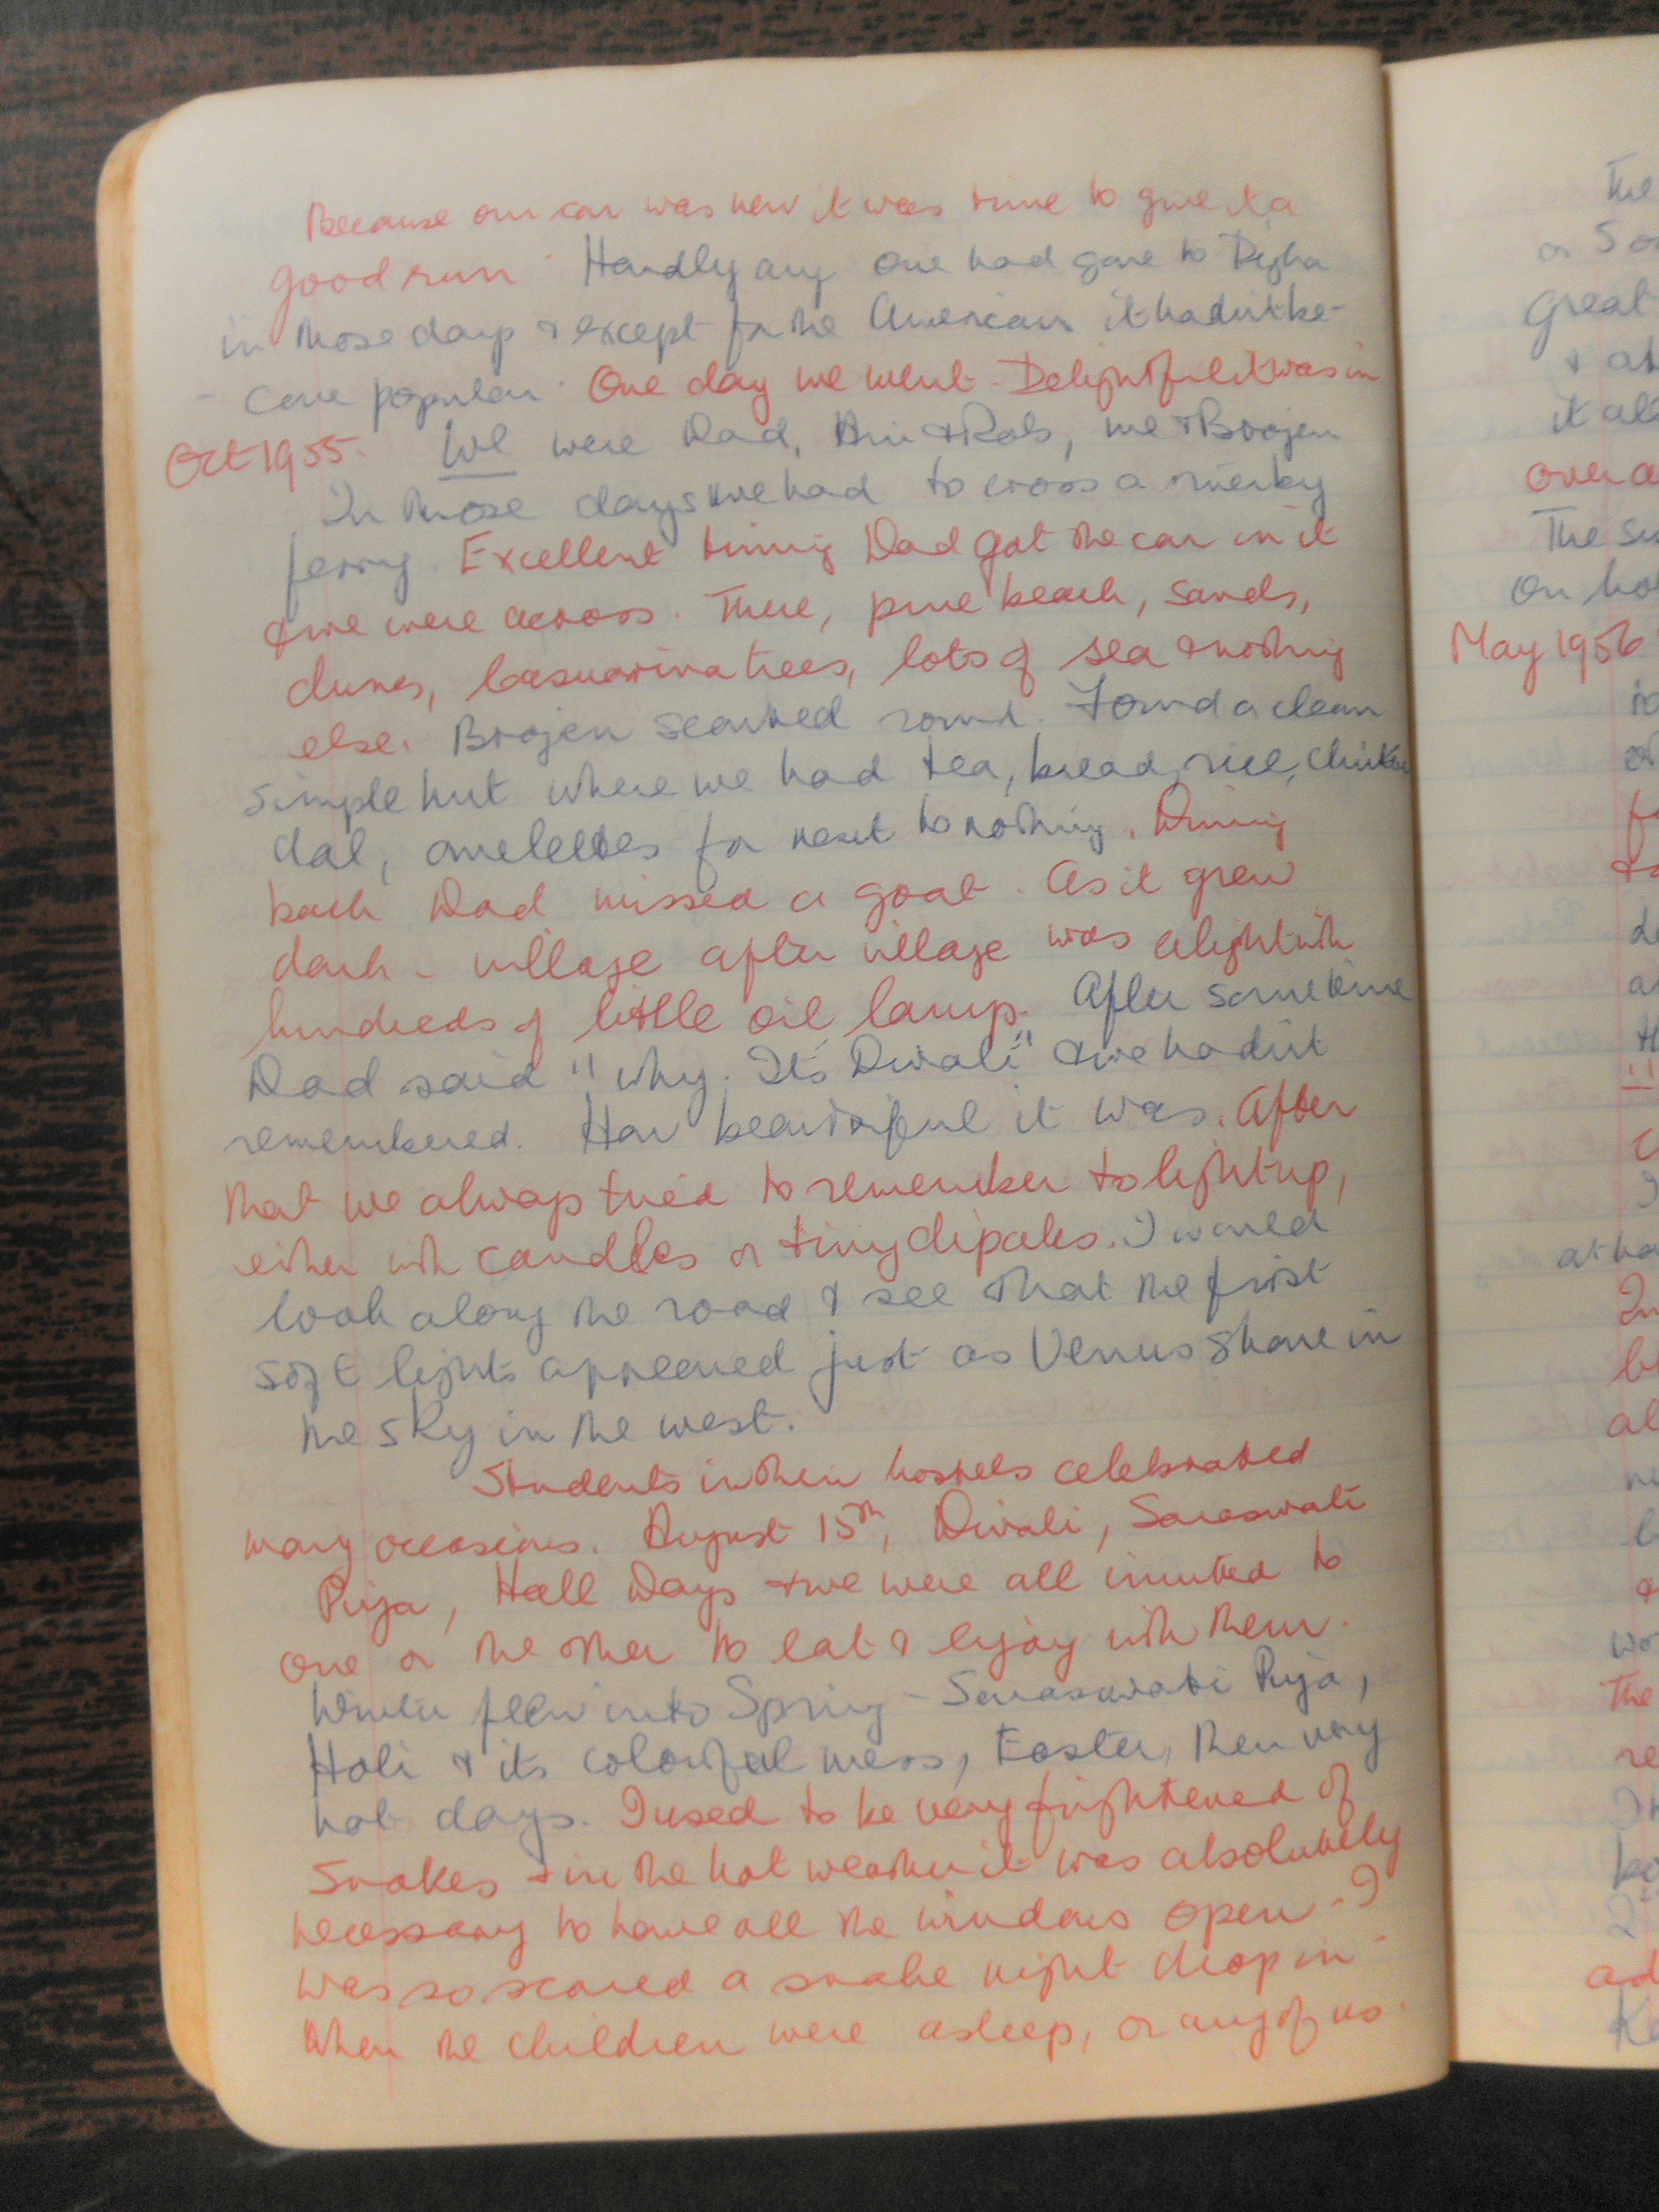 Because our car was new it was time to give it a
good run. Hardly any one had gone to Digha
in those days & except for the Americans it hadn't be-
- come popular. One day we went. Delightful it was in
Oct 1955. We were Dad, Ann & Rob, me & Brojen
In those days we had to cross a river by
ferry. Excellent timing Dad got the car in it
& we were across. There, pure beach, sands,
dunes, casuarina trees, lots of sea & nothing
else. Brojen searched round. Found a clean
simple hut where we had tea, bread, rice, chicken
dal, omelettes for next to nothing. Driving
back Dad missed a goat. As it grew
dark - village after village was alight with
hundreds of little oil lamps. After some time
Dad said "Why. It's Diwali" & we hadn't
remembered. How beautiful it was. After
that we always tried to remember to light up,
either with candles or tiny dipales. I would
look along the road & see that the first
soft lights appeared just as Venus shone in
the sky in the west.
Students in their hostels celebrated
many occasions. August 15th, Diwali, Saraswati
Puja, Hall Days & we were all invited to
one or the other to eat & enjoy with them.
Winter flew into Spring - Saraswati Puja,
Holi & its colorful mess, Easter, then very
hot days. I used to be very frightened of
snakes & in the hot weather it was absolutely
necessary to have all the windows open - I
was so scared a snake might drop in
when the children were asleep, or any of us.
The
or
Great
&
it all
over a
The
On
May 1956
The